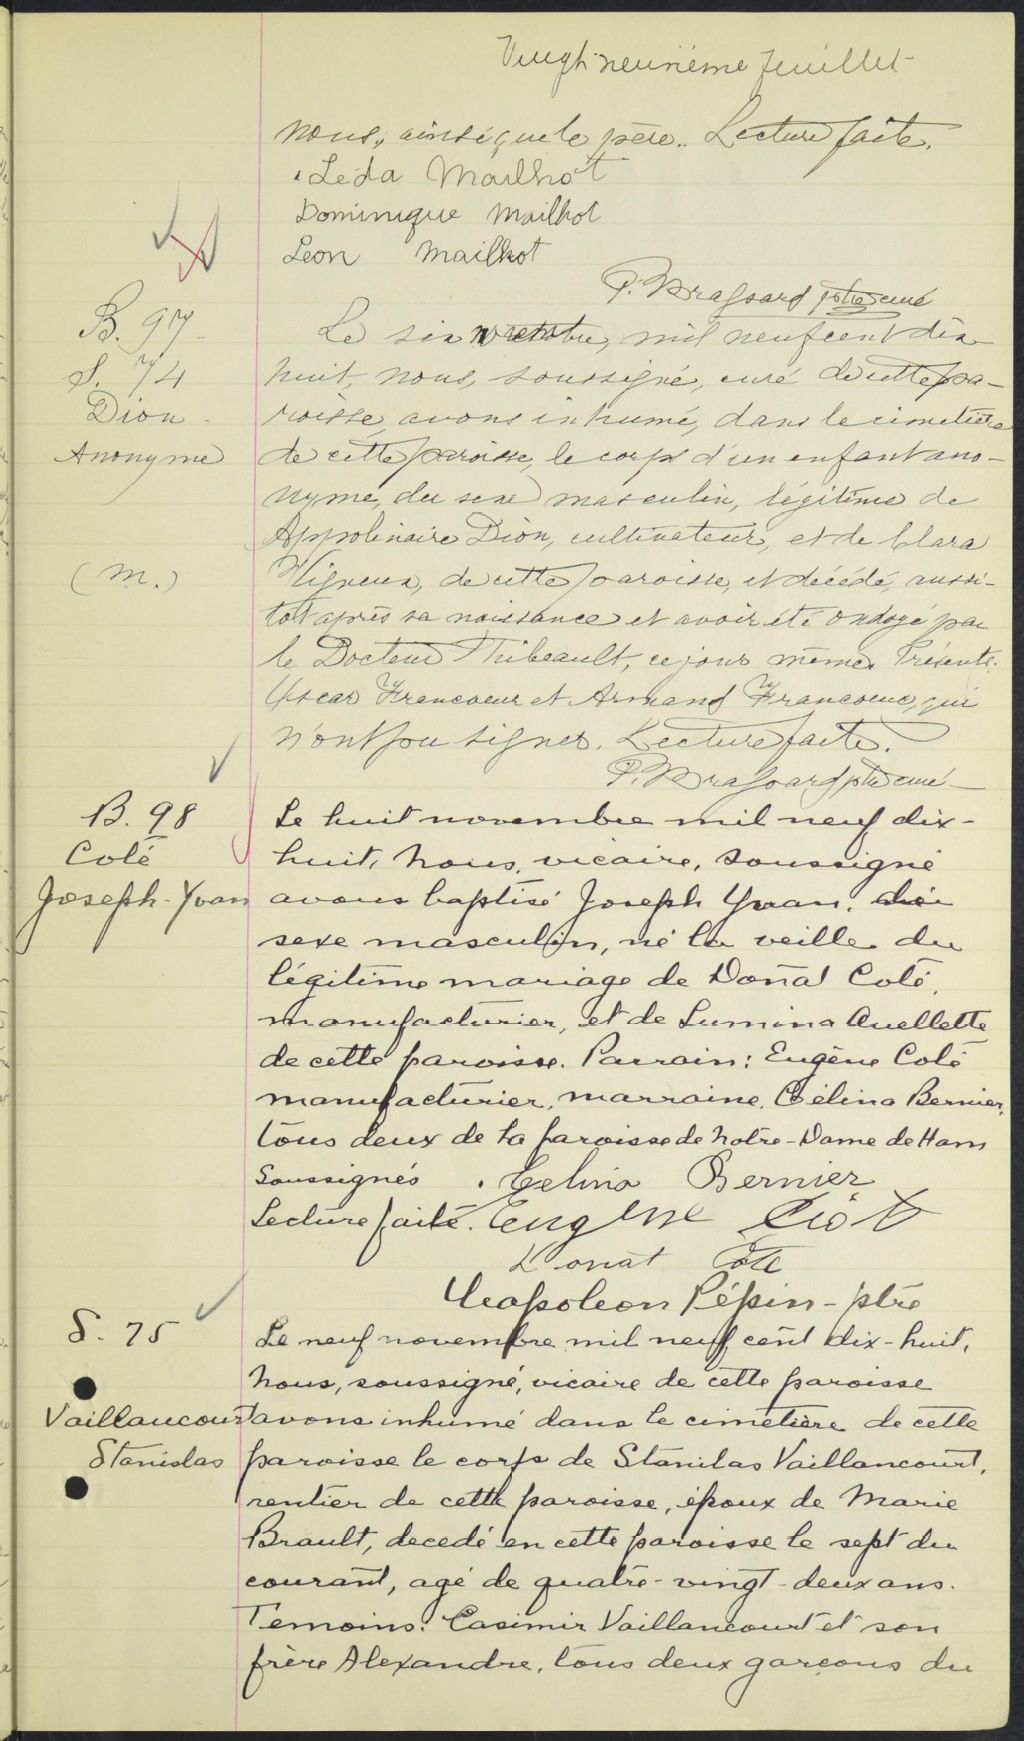 Vingt-neuvième feuillet
nous, ainsi que le père. Lecture faite.
Léda Mailhot
Dominique Mailhot
Leon Mailhot
P. Brassard ptre curé
B. 97
S. 74
Dion
Anonyme
(M.)
Le six novembre, mil neuf cent dix-
huit, nous, soussigné, curé de cette pa-
roisse, avons inhumé, dans le cimetière
de cette paroisse, le corps d'un enfant ano-
nyme, du sexe masculin, légitime de
Appolinaire Dion, cultivateur, et de Clara
Vigneux, de cette paroisse, et décédé, aussi-
tôt après sa naissance et avoir été ondoyé par
le Docteur Thibeault, ce jour même. Présents:
Oscar Francoeur et Armand Francoeur, qui
n'ont pu signer. Lecture faite.
P. Brassard ptre curé
B. 98
Colé
Joseph-Yvan
Le huit novembre mil neuf dix-
huit, nous, vicaire, soussigné
avons baptisé Joseph Yvan, du
sexe masculin, né la veille du
légitime mariage de Donat Coté,
manufacturier, et de Lumina Ouellette
de cette paroisse. Parrain: Eugène Coté
manufacturier, marraine, Célina Bernier,
tous deux de la paroisse de Notre-Dame de Ham
Soussignés Celina Bernier
Lecture faite. Eugène Coté
Donat Cote
Napoleon Pépin-ptre
S. 75
Vaillancourt
Stanislas
Le neuf novembre mil neuf cent dix-huit,
Nous, soussigné, vicaire de cette paroisse
avons inhumé dans le cimetière de cette
paroisse le corps de Stanilas Vaillancourt,
rentier de cette paroisse, époux de Marie
Brault, decedé en cette paroisse le sept du
courant, agé de quatre-vingt-deux ans.
Temoins: Casimir Vaillancourt et son
frère Alexandre, tous deux garçons du